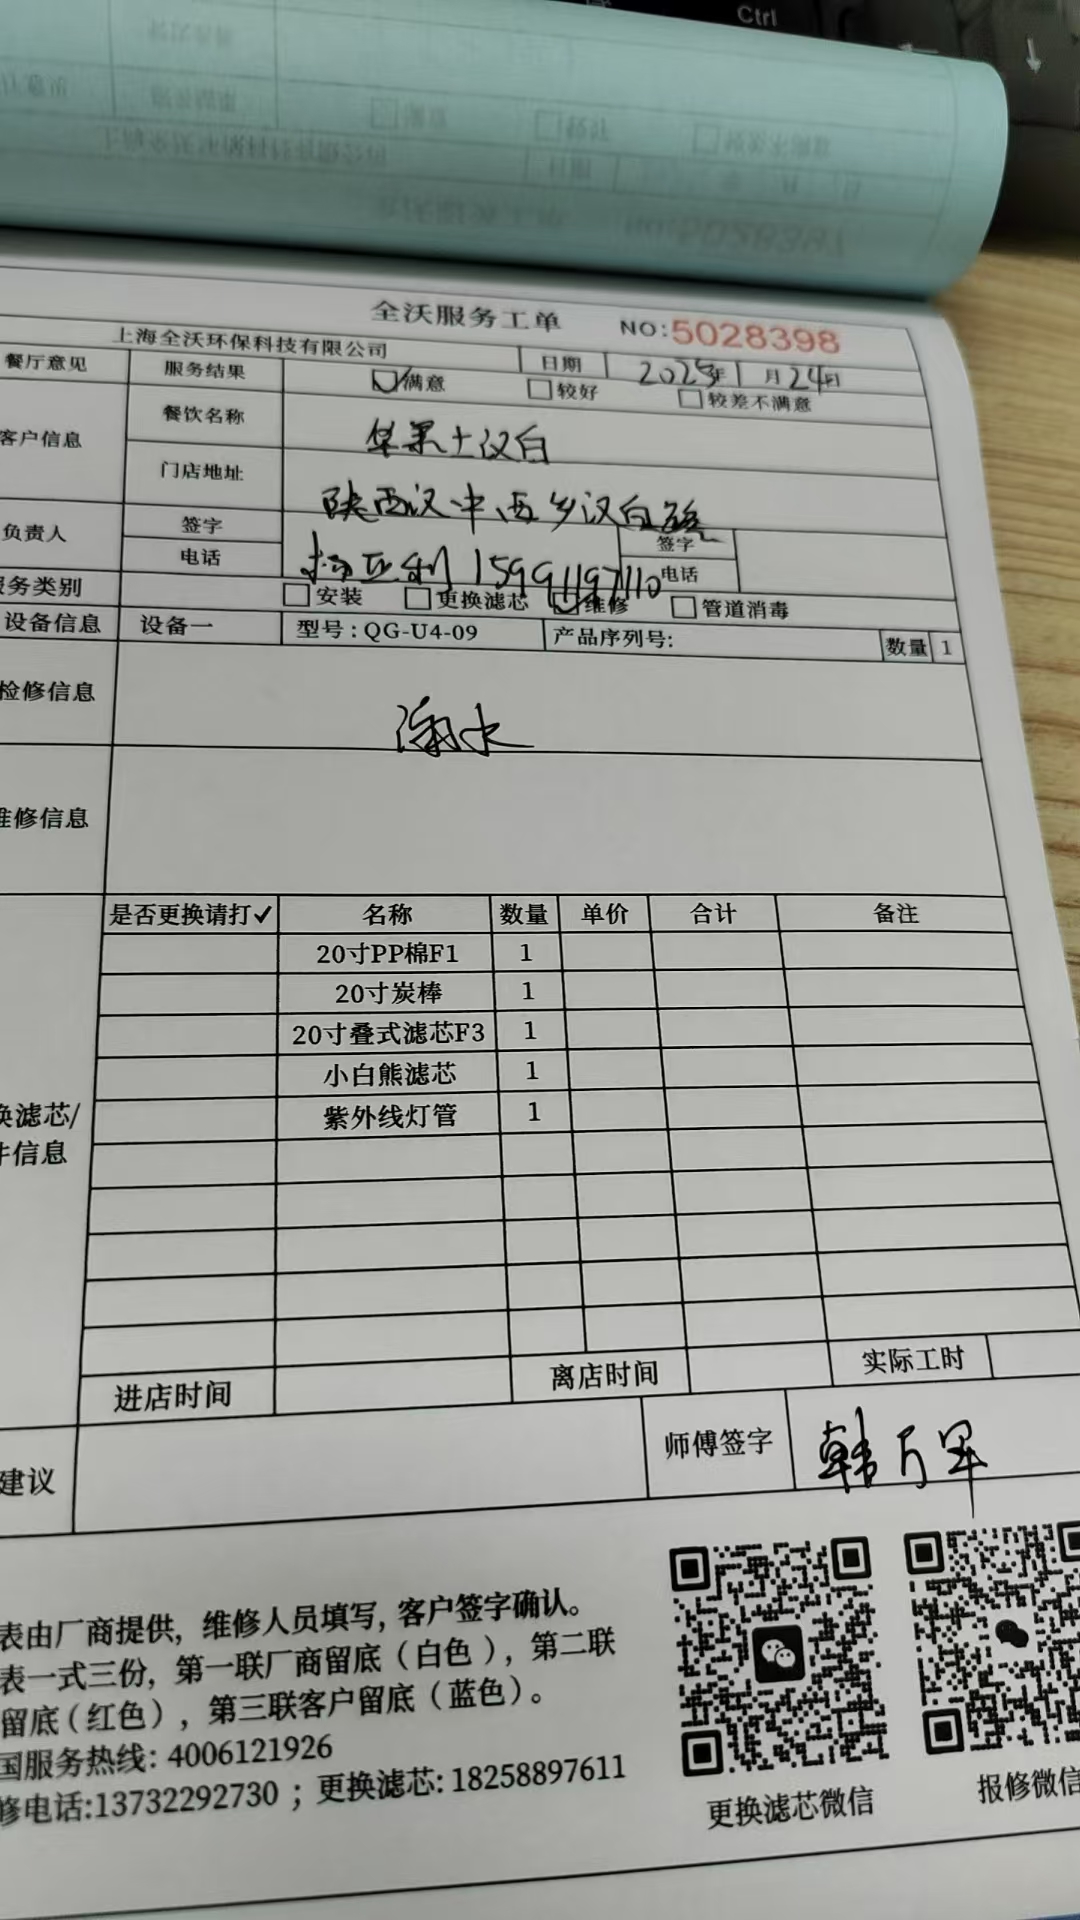 Ctrl
全沃服务工单 NO:5028398
上海全沃环保科技有限公司 日期 2025年1月24日
餐厅意见 服务结果 满意 较好 较差不满意
客户信息 餐饮名称 华莱士汉白
门店地址 陕西汉中西乡汉白路
负责人 签字 签字
电话 15991197110 电话
服务类别 安装 更换滤芯 维修 管道消毒
设备信息 设备一 型号:QG-U4-09 产品序列号: 数量 1
检修信息 漏水
维修信息
是否更换请打✓ 名称 数量 单价 合计 备注
20寸PP棉F1 1
20寸炭棒 1
20寸叠式滤芯F3 1
小白熊滤芯 1
紫外线灯管 1
换滤芯/
件信息
进店时间 离店时间 实际工时
建议 师傅签字 韩万军
表由厂商提供, 维修人员填写, 客户签字确认。
表一式三份, 第一联厂商留底(白色), 第二联
留底(红色), 第三联客户留底(蓝色)。
国服务热线: 4006121926
修电话:13732292730; 更换滤芯: 18258897611
更换滤芯微信 报修微信